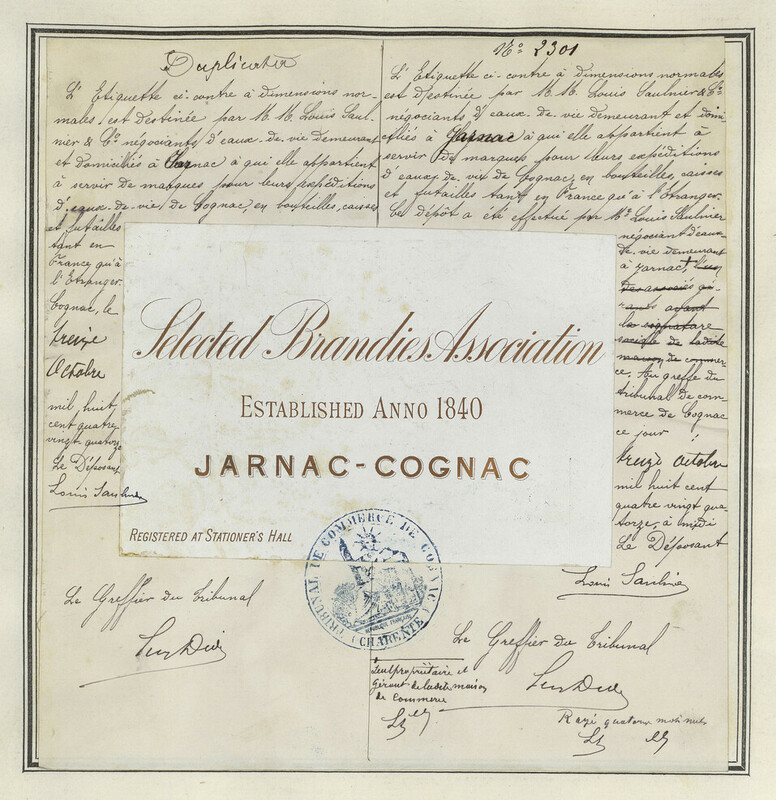 Duplicata
L'Etiquette ci-contre à dimensions nor-
males, est destinée par M. M. Louis Saul-
nier & Cie négociants d'eaux-de-vie demeurant
et domiciliés à Jarnac à qui elle appartient
à servir de marques pour leurs expéditions
d'eaux-de-vie de Cognac, en bouteilles, caisses
et futailles
tant en
France qu'à
l'Etranger.
Cognac, le
treize
Octobre
mil huit
cent quatre
vingt quatorze
Le Déposant
Louis Saulnier
Le Greffier du Tribunal
No 2301
L'Etiquette ci-contre à dimensions normales
est destinée par M. M. Louis Saulnier & Cie
négociants d'eaux-de-vie demeurant et domi-
ciliés à Jarnac à qui elle appartient à
servir de marques pour leurs expéditions
d'eaux-de-vie de Cognac, en bouteilles, caisses
et futailles tant en France qu'à l'Etranger.
Ce dépôt a été effectué par Mr Louis Saulnier
négociant d'eaux-
de-vie demeurant
à Jarnac, l'un
des associés gé-
rants ayant
la signature
sociale de ladite
maison de commer-
ce. Au greffe du
tribunal de com-
merce de Cognac
ce jour
treize Octobre
mil huit cent
quatre vingt qua-
torze, à midi
Le Déposant
Louis Saulnier
Le Greffier du Tribunal
+ Seul propriétaire et
Gérant de ladite maison
de Commerce
LS
Rayé quatorze mots nuls
LS
Selected Brandies Association
ESTABLISHED ANNO 1840
JARNAC-COGNAC
REGISTERED AT STATIONER'S HALL
TRIBUNAL DE COMMERCE DE COGNAC
(CHARENTE)